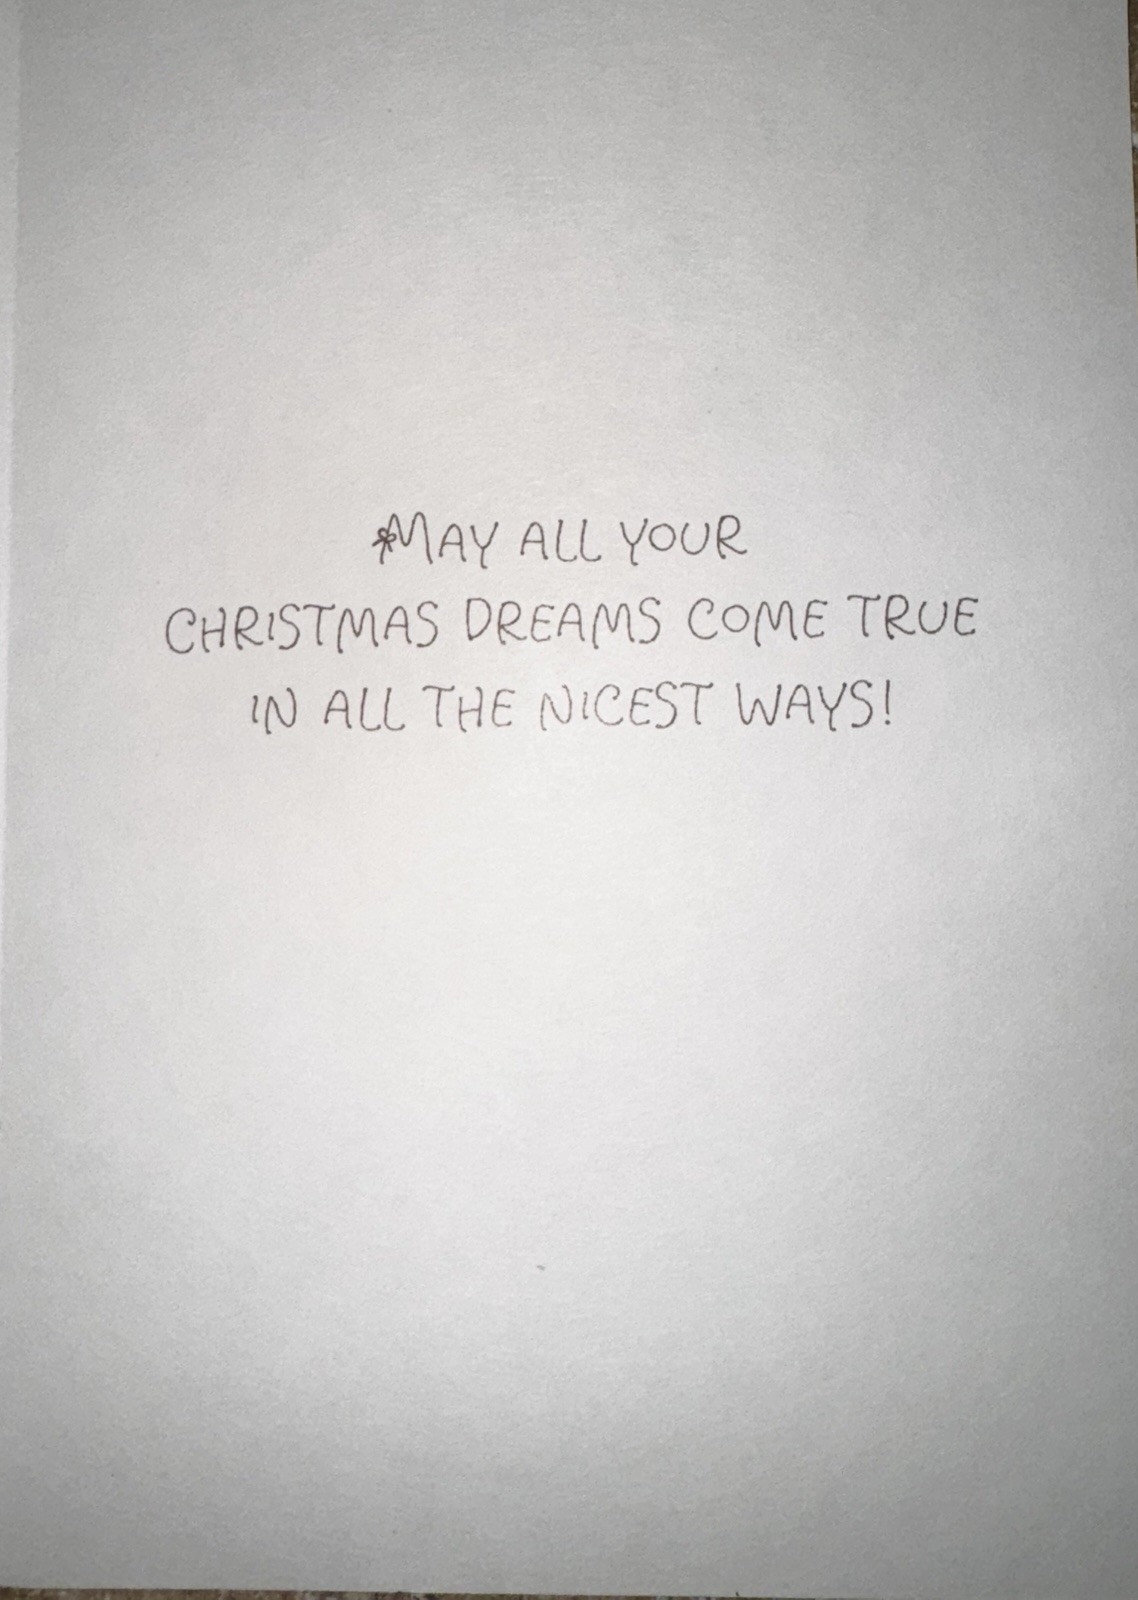 *MAY ALL YOUR
CHRISTMAS DREAMS COME TRUE
IN ALL THE NICEST WAYS!